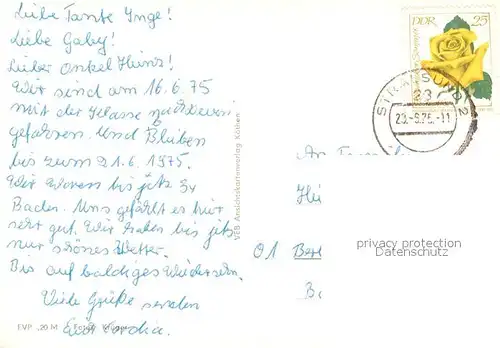 Liebe Tante Inge!
Liebe Gaby!
Lieber Onkel Heinz!
Wir sind am 16.6.75
mit der Klasse nach
gefahren. Und Bleiben
bis zum 21.6.1975.
Wir waren bis jetz 3x
Baden. Uns gefählt es hier
sehr gut. Wir haben bis jetz
nur schönes Wetter.
Bis auf baldiges Wiedersehn.
Viele Grüße senden
Eure
EVP -,20 M Foto: Krüger
VEB Ansichtskartenverlag Köben
DDR 25
STRALSUND 2
23
An Famili
Hei
01 Berl
B
privacy protection
Datenschutz